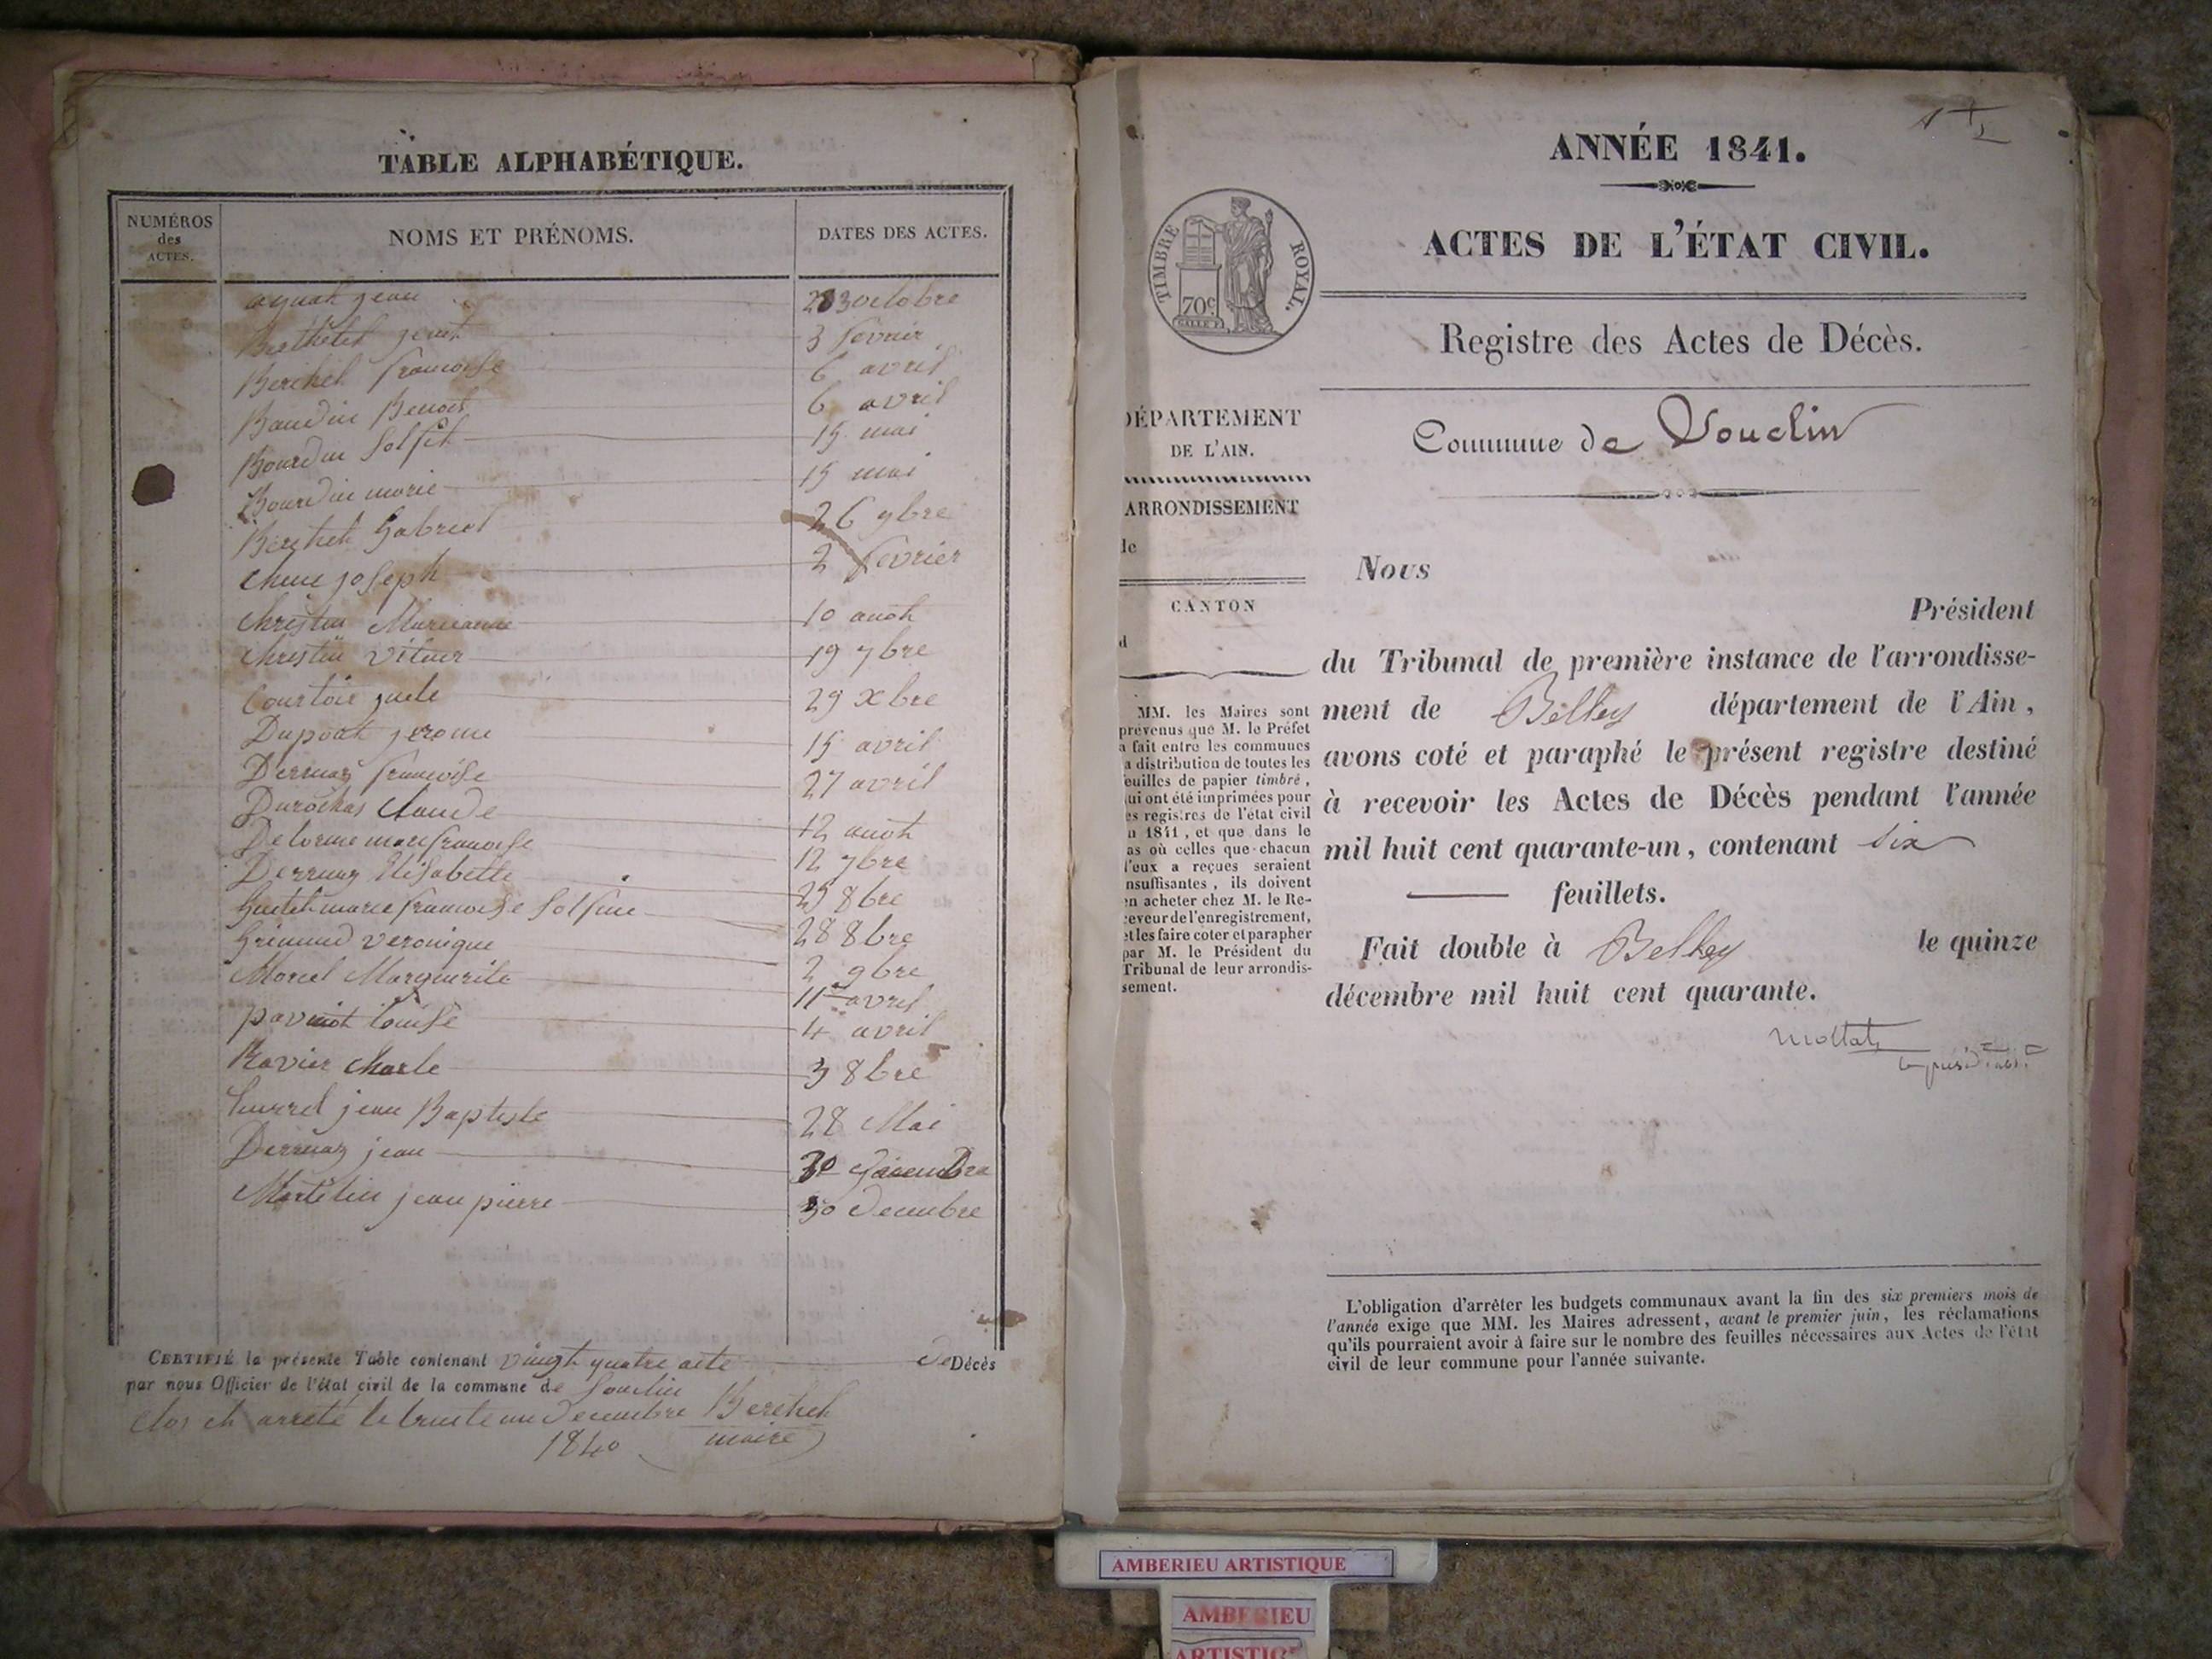 TABLE ALPHABÉTIQUE.
NUMÉROS
des
ACTES.
NOMS ET PRÉNOMS.
DATES DES ACTES.
jean octobre
3 fevrier
Francoise 6 avril
Baudin Benoit 6 avril
Bourdin 15 mai
Bourdin marie 15 mai
Berthet Gabriel 26 9bre
joseph 2 fevrier
Chrestin Marianne 10 auot
Chrestin 19 7bre
Courtois 29 xbre
Dupont jerome 15 avril
Derruaz francoise 27 avril
Durochas Claude
Delorme marie francoise 12 auot
Derruaz Elisabette 12 9bre
marie francoise 8bre
veronique 28 8bre
Morel Marguerite 2 9bre
11 avril
Louise 4 avril
Ravier Charle 3 8bre
jean Baptiste 28 Mai
Derruaz jean 30
Martelin jean pierre 30 decembre
CERTIFIÉ la présente Table contenant vingt quatre acte de Décès
par nous Officier de l'état civil de la commune de Souclin
Clos et arreté le trente un Decembre Berthet
1840 maire
ANNÉE 1841.
ACTES DE L'ÉTAT CIVIL.
TIMBRE ROYAL.
70c
Registre des Actes de Décès.
Commune de Souclin
DÉPARTEMENT
DE L'AIN.
ARRONDISSEMENT
de
CANTON
d
MM. les Maires sont
prévenus que M. le Préfet
a fait entre les communes
a distribution de toutes les
euilles de papier timbré,
ui ont été imprimées pour
es registres de l'état civil
n 1841, et que dans le
as où celles que chacun
d'eux a reçues seraient
nsuffisantes, ils doivent
en acheter chez M. le Re-
ceveur de l'enregistrement,
et les faire coter et parapher
par M. le Président du
Tribunal de leur arrondis-
sement.
Nous
Président
du Tribunal de première instance de l'arrondisse-
ment de Belley département de l'Ain,
avons coté et paraphé le présent registre destiné
à recevoir les Actes de Décès pendant l'année
mil huit cent quarante-un, contenant six
feuillets.
Fait double à Belley le quinze
décembre mil huit cent quarante.
L'obligation d'arrêter les budgets communaux avant la fin des six premiers mois de
l'année exige que MM. les Maires adressent, avant le premier juin, les réclamations
qu'ils pourraient avoir à faire sur le nombre des feuilles nécessaires aux Actes de l'état
civil de leur commune pour l'année suivante.
AMBERIEU ARTISTIQUE
AMBERIEU
ARTISTIQ